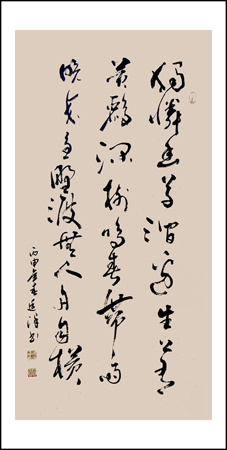 獨憐幽草澗邊生上有
黃鸝深樹鳴春潮帶雨
晚來急野渡無人舟自橫
丙申 書